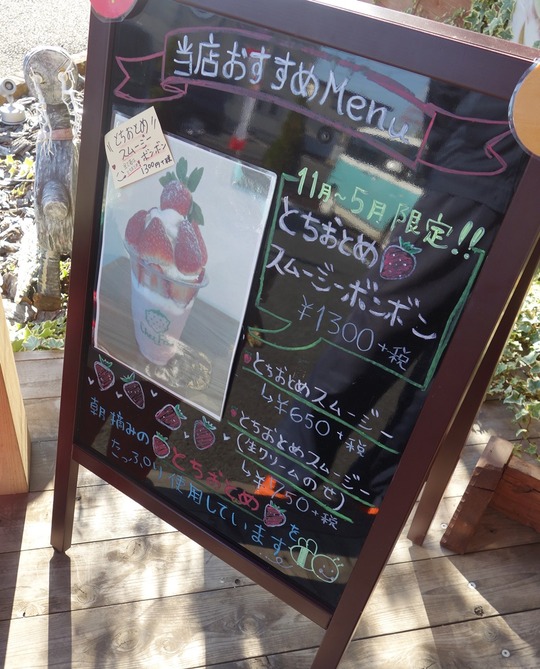 当店おすすめMenu
とちおとめ!!
スムージー
ボンボン
1300円+税
11月~5月限定!!
とちおとめ
スムージーボンボン
¥1300+税
とちおとめスムージー
↳¥650+税
とちおとめスムージー
(生クリームのせ)
↳¥750+税
朝摘みのとちおとめを
たっぷり使用しています。